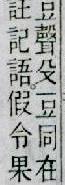 豆聲殳豆同在
註記語。假令果